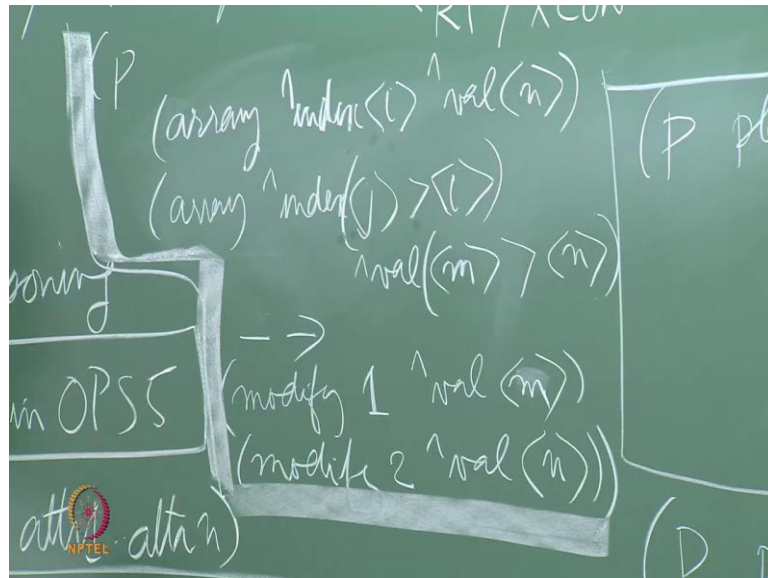 R1 / XCON
(P
(array ^index<i> ^val<n>)
(array ^index(<j> > <i>)
^val(<m> > <n>)
-->
(modify 1 ^val <m>)
(modify 2 ^val <n>))
oning
in OPS5
attr attrn)
NPTEL
(P pl
(P